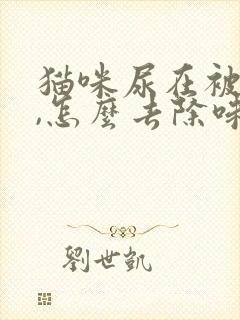 猫咪尿在被
,怎麼去除味
劉世凱